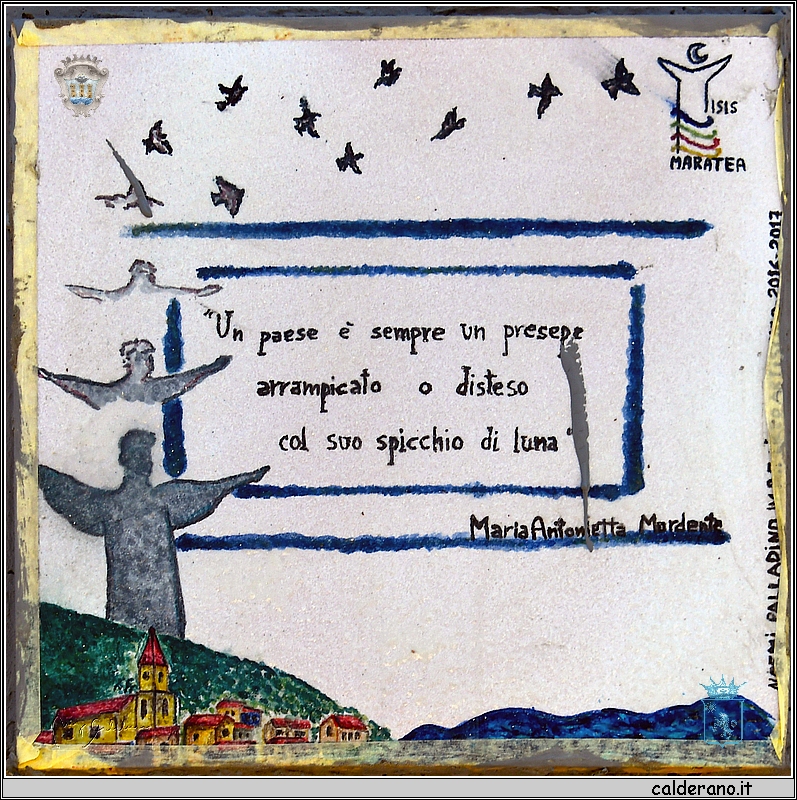 ISIS
MARATEA
"Un paese è sempre un presepe
arrampicato o disteso
col suo spicchio di luna"
Maria Antonietta Mordente
NOEMI PALLADINO 2016-2017
calderano.it